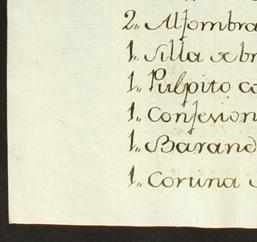 2,, Alfombra
1,, Silla de br
1,, Pulpito co
1,, Confesion
1,, Barand
1,, Cortina